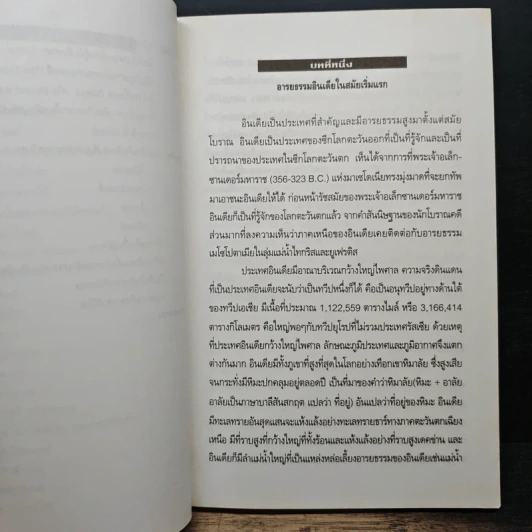 บทที่หนึ่ง
อารยธรรมอินเดียในสมัยเริ่มแรก
อินเดียเป็นประเทศที่สำคัญและมีอารยธรรมสูงมาตั้งแต่สมัย
โบราณ อินเดียเป็นประเทศของซีกโลกตะวันออกที่เป็นที่รู้จักและเป็นที่
ปรารถนาของประเทศในซีกโลกตะวันตก เห็นได้จากการที่พระเจ้าอเล็ก-
ซานเดอร์มหาราช (356-323 B.C.) แห่งมาซิโดเนียทรงมุ่งมาดที่จะยกทัพ
มาเอาชนะอินเดียให้ได้ ก่อนหน้ารัชสมัยของพระเจ้าอเล็กซานเดอร์มหาราช
อินเดียก็เป็นที่รู้จักของโลกตะวันตกแล้ว จากคำสันนิษฐานของนักโบราณคดี
ส่วนมากที่ลงความเห็นว่าภาคเหนือของอินเดียเคยติดต่อกับอารยธรรม
เมโซโปตาเมียในลุ่มแม่น้ำไทกริสและยูเฟรติส
ประเทศอินเดียมีอาณาบริเวณกว้างใหญ่ไพศาล ความจริงดินแดน
ที่เป็นประเทศอินเดียจะนับว่าเป็นทวีปหนึ่งก็ได้ คือเป็นอนุทวีปอยู่ทางด้านใต้
ของทวีปเอเชีย มีเนื้อที่ประมาณ 1,122,559 ตารางไมล์ หรือ 3,166,414
ตารางกิโลเมตร คือใหญ่พอๆกับทวีปยุโรปที่ไม่รวมประเทศรัสเซีย ด้วยเหตุ
ที่ประเทศอินเดียกว้างใหญ่ไพศาล ลักษณะภูมิประเทศและภูมิอากาศจึงแตก
ต่างกันมาก อินเดียมีทั้งภูเขาที่สูงที่สุดในโลกอย่างเทือกเขาหิมาลัย ซึ่งสูงเสีย
จนกระทั่งมีหิมะปกคลุมอยู่ตลอดปี เป็นที่มาของคำว่าหิมาลัย(หิมะ + อาลัย
อาลัยเป็นภาษาบาลีสันสกฤต แปลว่า ที่อยู่) อันแปลว่าที่อยู่ของหิมะ อินเดีย
มีทะเลทรายอันสุดแสนจะแห้งแล้งอย่างทะเลทรายธาร์ทางภาคตะวันตกเฉียง
เหนือ มีที่ราบสูงที่กว้างใหญ่ที่ทั้งร้อนและแห้งแล้งอย่างที่ราบสูงเดคข่าน และ
อินเดียก็มีลำแม่น้ำใหญ่ที่เป็นแหล่งหล่อเลี้ยงอารยธรรมของอินเดียเช่นแม่น้ำ